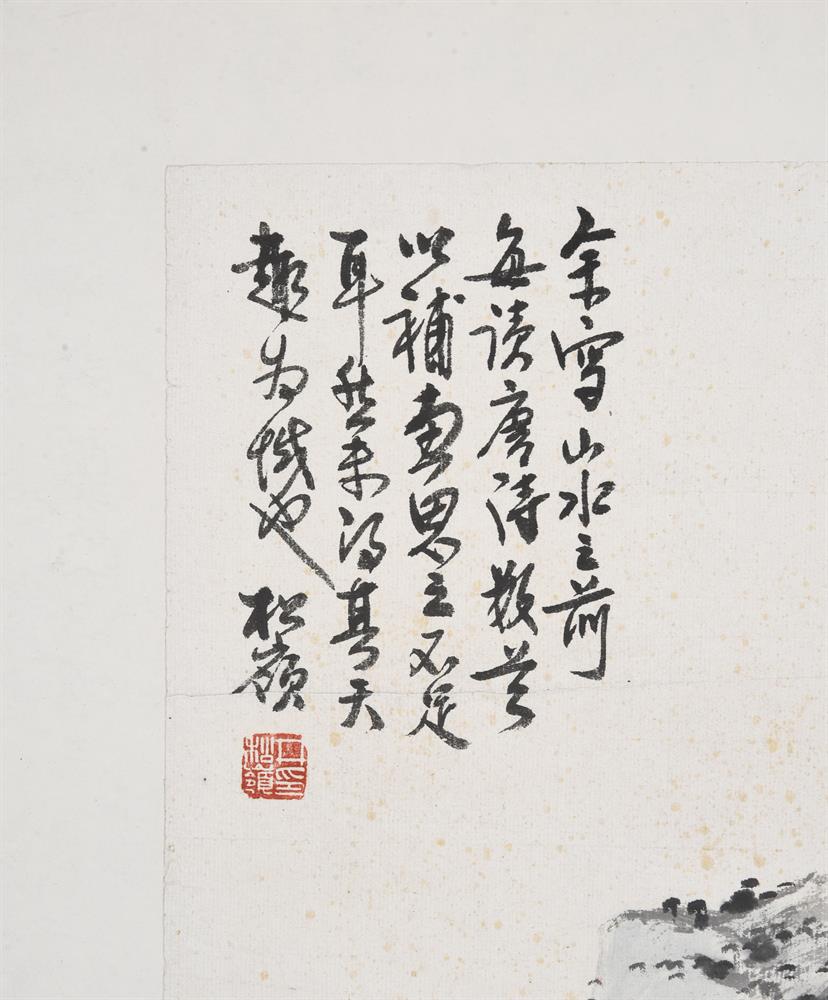 余写山水之前
每读唐诗数首
以補画思之不足
耳然未得其天
趣为憾也
松嶺
松嶺